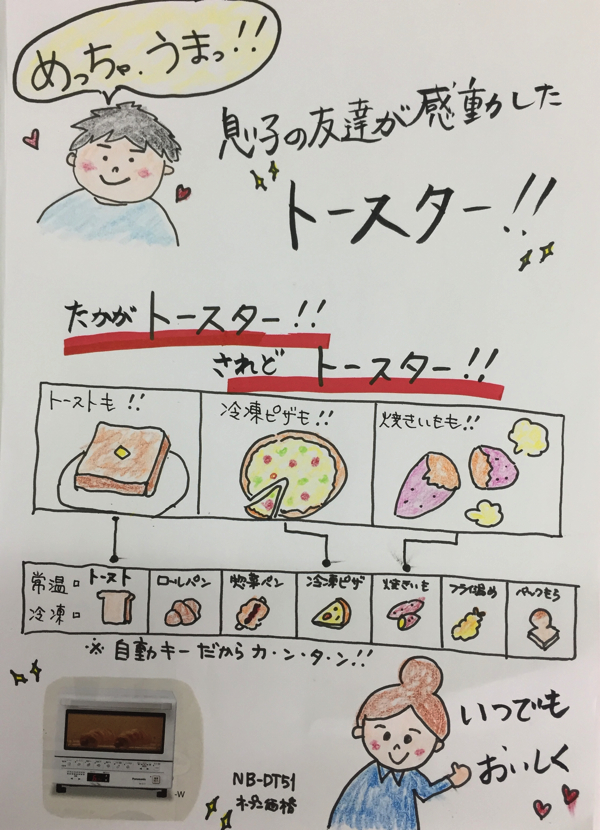 めっちゃ.うまっ!!
息子の友達が感動した
トースター!!
たかがトースター!!
されど トースター!!
トーストも!!
冷凍ピザも!!
焼きいもも!!
常温□
冷凍□
トースト
ロールパン
惣菜パン
冷凍ピザ
焼きいも
フライ温め
パックもち
※自動キーだからカ・ン・タ・ン!!
Panasonic
-W
NB-DT51
オープン価格
いつでも
おいしく